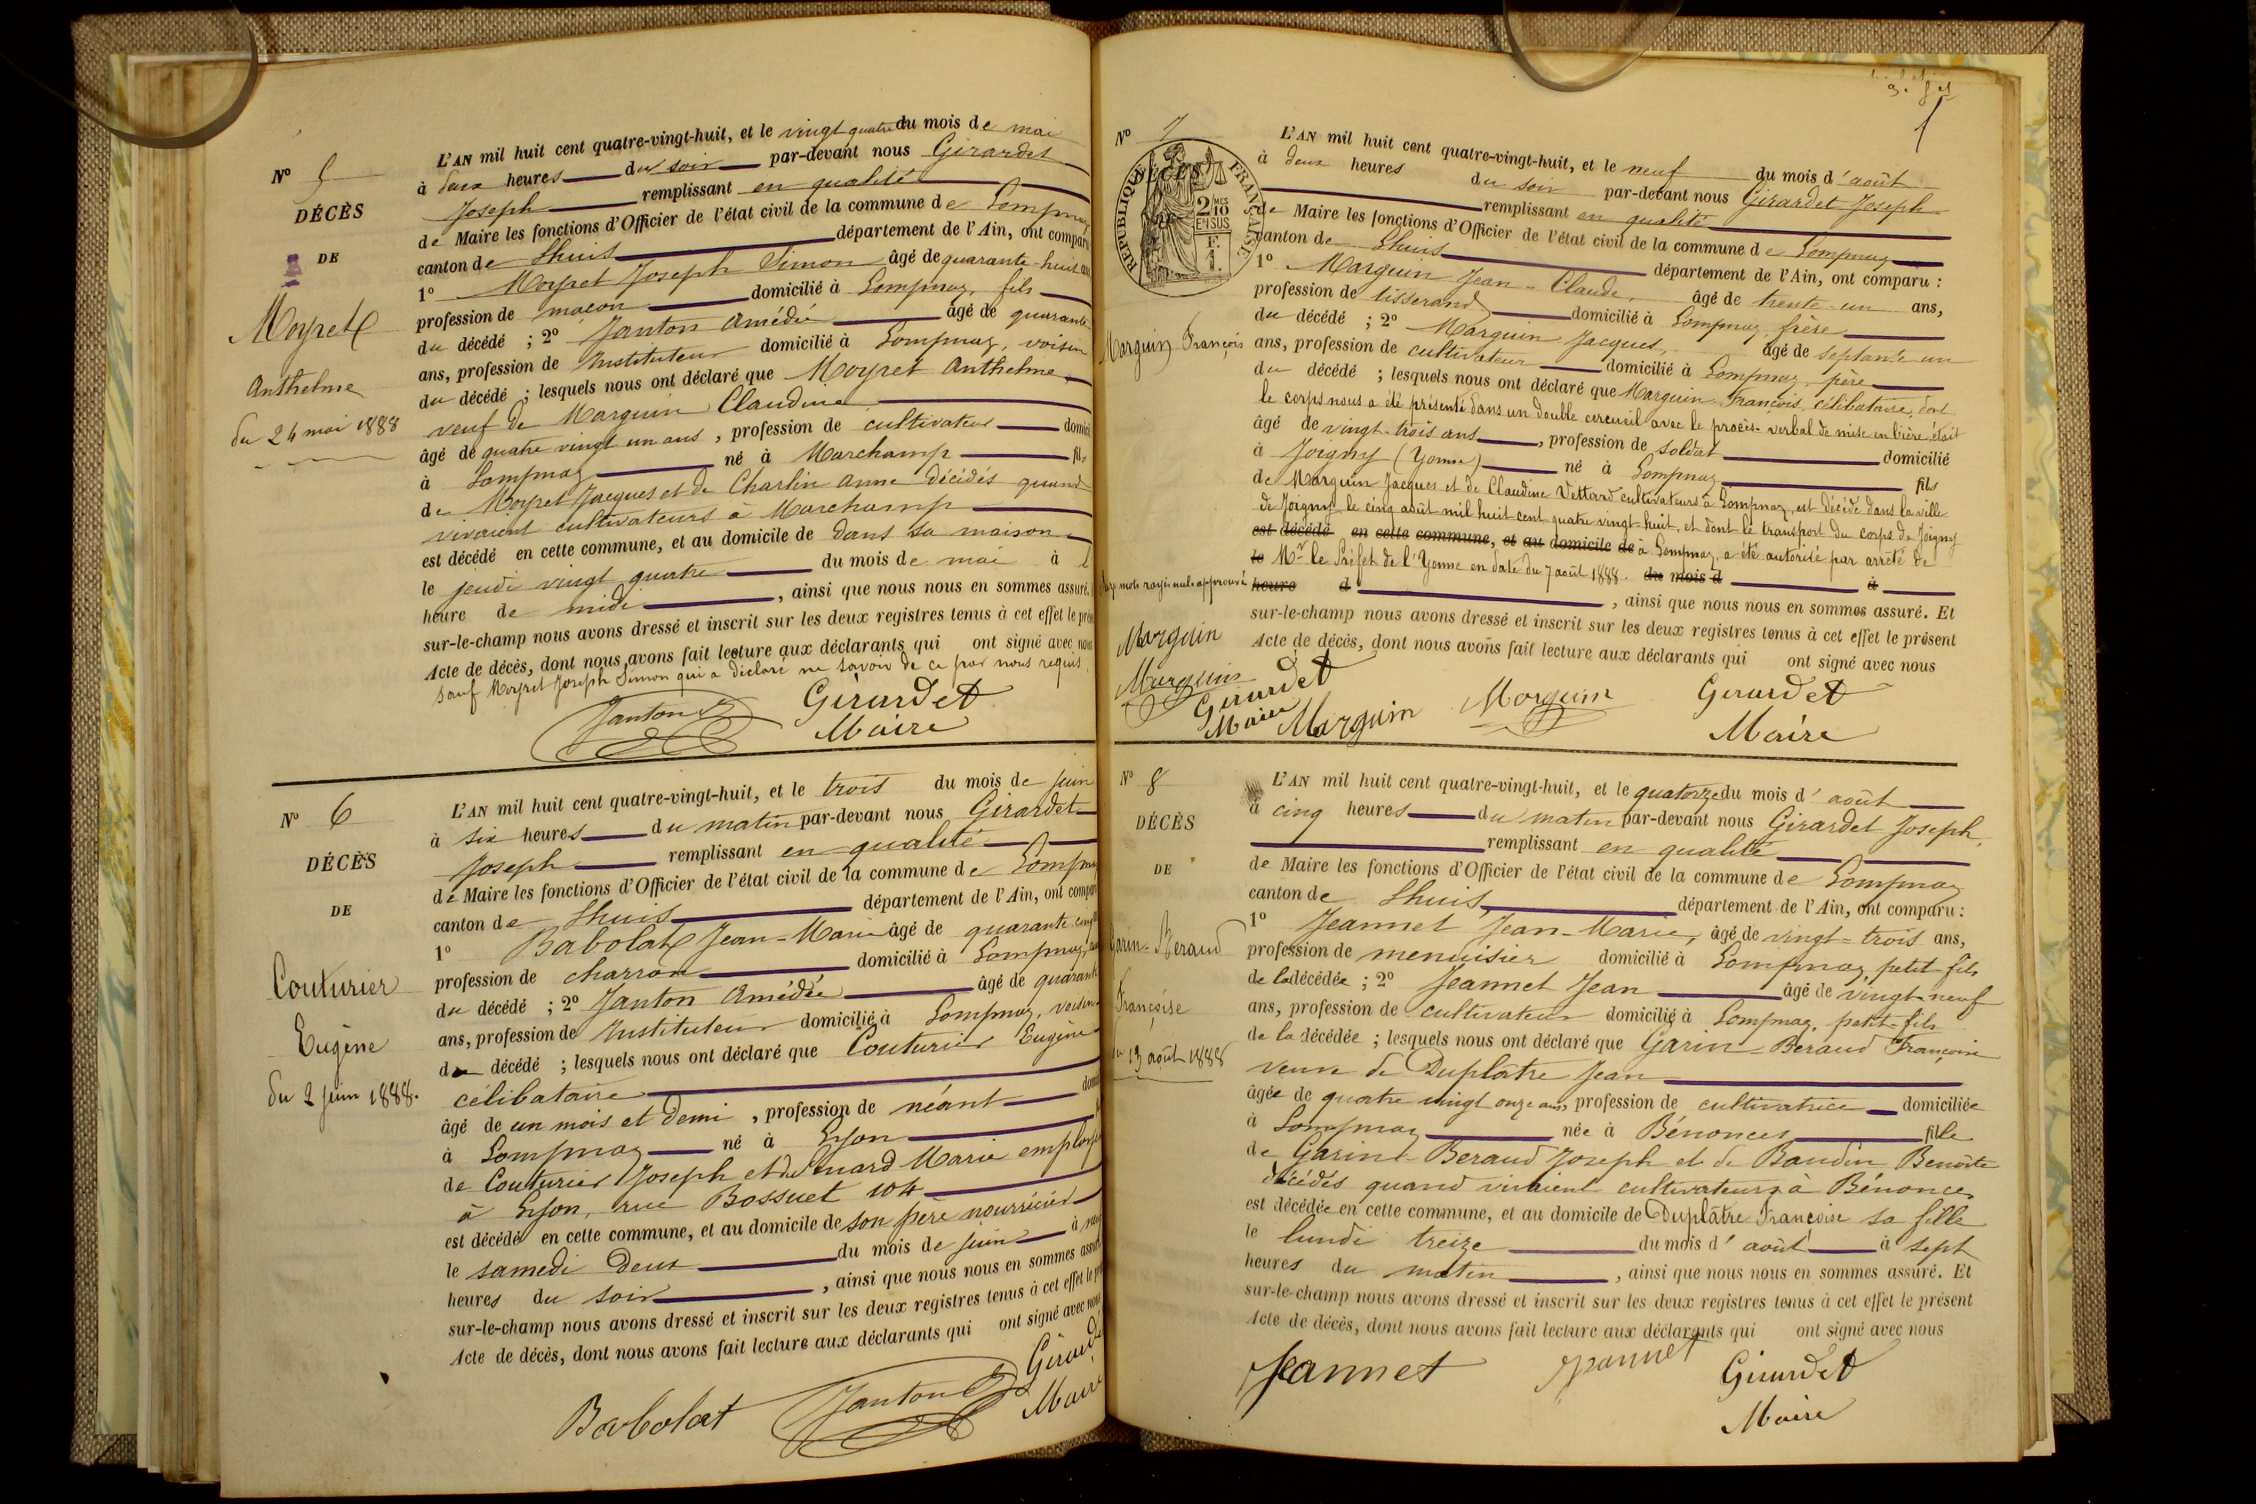 Nº 5
DÉCÈS
DE
Moyret
Anthelme
du 24 mai 1888
L'AN mil huit cent quatre-vingt-huit, et le vingt quatre du mois de mai
à deux heures du soir par-devant nous Girardet
Joseph remplissant en qualité
de Maire les fonctions d'Officier de l'état civil de la commune de Lompnaz
canton de Lhuis département de l'Ain, ont comparu
1º Moyret Joseph Simon âgé de quarante-huit ans
profession de maçon domicilié à Lompnaz, fils
du décédé ; 2º Janton Amédée âgé de quarante
ans, profession de Instituteur domicilié à Lompnaz, voisin
du décédé ; lesquels nous ont déclaré que Moyret Anthelme
veuf de Marguin Claudine
âgé de quatre vingt un ans, profession de cultivateur domici
à Lompnaz né à Marchamp fils
de Moyret Jacques et de Charlin Anne décédés quand
vivaient cultivateurs à Marchamp
est décédé en cette commune, et au domicile de dans sa maison
le jeudi vingt quatre du mois de mai à l
heure de midi, ainsi que nous nous en sommes assuré.
sur-le-champ nous avons dressé et inscrit sur les deux registres tenus à cet effet le prés
Acte de décès, dont nous avons fait lecture aux déclarants qui ont signé avec nous
sauf Moyret Joseph Simon qui a déclaré ne savoir de ce par nous requis.
Janton A Girardet
Maire
Nº 6
DÉCÈS
DE
Couturier
Eugène
du 2 juin 1888.
L'AN mil huit cent quatre-vingt-huit, et le trois du mois de juin
à six heures du matin par-devant nous Girardet
Joseph remplissant en qualité
de Maire les fonctions d'Officier de l'état civil de la commune de Lompnaz
canton de Lhuis département de l'Ain, ont compar
1º Babolat Jean-Marie âgé de quarante cinq
profession de charron domicilié à Lompnaz,
du décédé ; 2º Janton Amédée âgé de quarante
ans, profession de Instituteur domicilié à Lompnaz, voisin
du décédé ; lesquels nous ont déclaré que Couturier Eugène
célibataire
âgé de un mois et demi, profession de néant domi
à Lompnaz né à Lyon
de Couturier Joseph et de Marie employés
à Lyon, rue Bossuet 104
est décédé en cette commune, et au domicile de son père nourricier
le samedi deux du mois de juin à neuf
heures du soir, ainsi que nous nous en sommes assuré
sur-le-champ nous avons dressé et inscrit sur les deux registres tenus à cet effet le pr
Acte de décès, dont nous avons fait lecture aux déclarants qui ont signé avec nous
Babolat Janton A Girardet
Maire
Nº 7
DÉCÈS
DE
RÉPUBLIQUE FRANÇAISE
2 MES
10
EN SUS
F.
1.
Marguin François
L'AN mil huit cent quatre-vingt-huit, et le neuf du mois d'août
à deux heures du soir par-devant nous Girardet Joseph
remplissant en qualité
de Maire les fonctions d'Officier de l'état civil de la commune de Lompnaz
canton de Lhuis département de l'Ain, ont comparu :
1º Marguin Jean-Claude, âgé de trente-un ans,
profession de tisserand domicilié à Lompnaz frère
du décédé ; 2º Marguin Jacques, âgé de septante un
ans, profession de cultivateur domicilié à Lompnaz, père
du décédé ; lesquels nous ont déclaré que Marguin François, célibataire, dont
le corps nous a été présenté dans un double cercueil avec le procès-verbal de mise en bière était
âgé de vingt-trois ans, profession de soldat domicilié
à Joigny (Yonne) né à Lompnaz fils
de Marguin Jacques et de Claudine Vettard cultivateurs à Lompnaz, est décédé dans la ville
de Joigny le cinq août mil huit cent quatre vingt-huit, et dont le transport du corps de Joigny
est décédé en cette commune, et au domicile de à Lompnaz, a été autorisé par arrêté de
le Mr le Préfet de l'Yonne en date du 7 août 1888. du mois d à
heure d, ainsi que nous nous en sommes assuré. Et
mots rayés nuls approuvé
sur-le-champ nous avons dressé et inscrit sur les deux registres tenus à cet effet le présent
Acte de décès, dont nous avons fait lecture aux déclarants qui ont signé avec nous
Marguin
Marguin
Girardet
Maire
Marguin Marguin Girardet
Maire
Nº 8
DÉCÈS
DE
Garin-Beraud
Françoise
du 13 août 1888
L'AN mil huit cent quatre-vingt-huit, et le quatorze du mois d'août
à cinq heures du matin par-devant nous Girardet Joseph,
remplissant en qualité
de Maire les fonctions d'Officier de l'état civil de la commune de Lompnaz
canton de Lhuis département de l'Ain, ont comparu :
1º Jeannet Jean-Marie, âgé de vingt-trois ans,
profession de menuisier domicilié à Lompnaz, petit-fils
de la décédée ; 2º Jeannet Jean âgé de vingt-neuf
ans, profession de cultivateur domicilié à Lompnaz, petit-fils
de la décédée ; lesquels nous ont déclaré que Garin-Beraud Françoise
veuve de Duplâtre Jean
âgée de quatre vingt onze ans, profession de cultivatrice domiciliée
à Lompnaz née à Bénonces fille
de Garin-Beraud Joseph et de Baudin Benoîte
décédés quand vivaient cultivateurs à Bénonces
est décédée en cette commune, et au domicile de Duplâtre Françoise sa fille
le lundi treize du mois d'août à sept
heures du matin, ainsi que nous nous en sommes assuré. Et
sur-le-champ nous avons dressé et inscrit sur les deux registres tenus à cet effet le présent
Acte de décès, dont nous avons fait lecture aux déclarants qui ont signé avec nous
Jeannet Jeannet Girardet
Maire